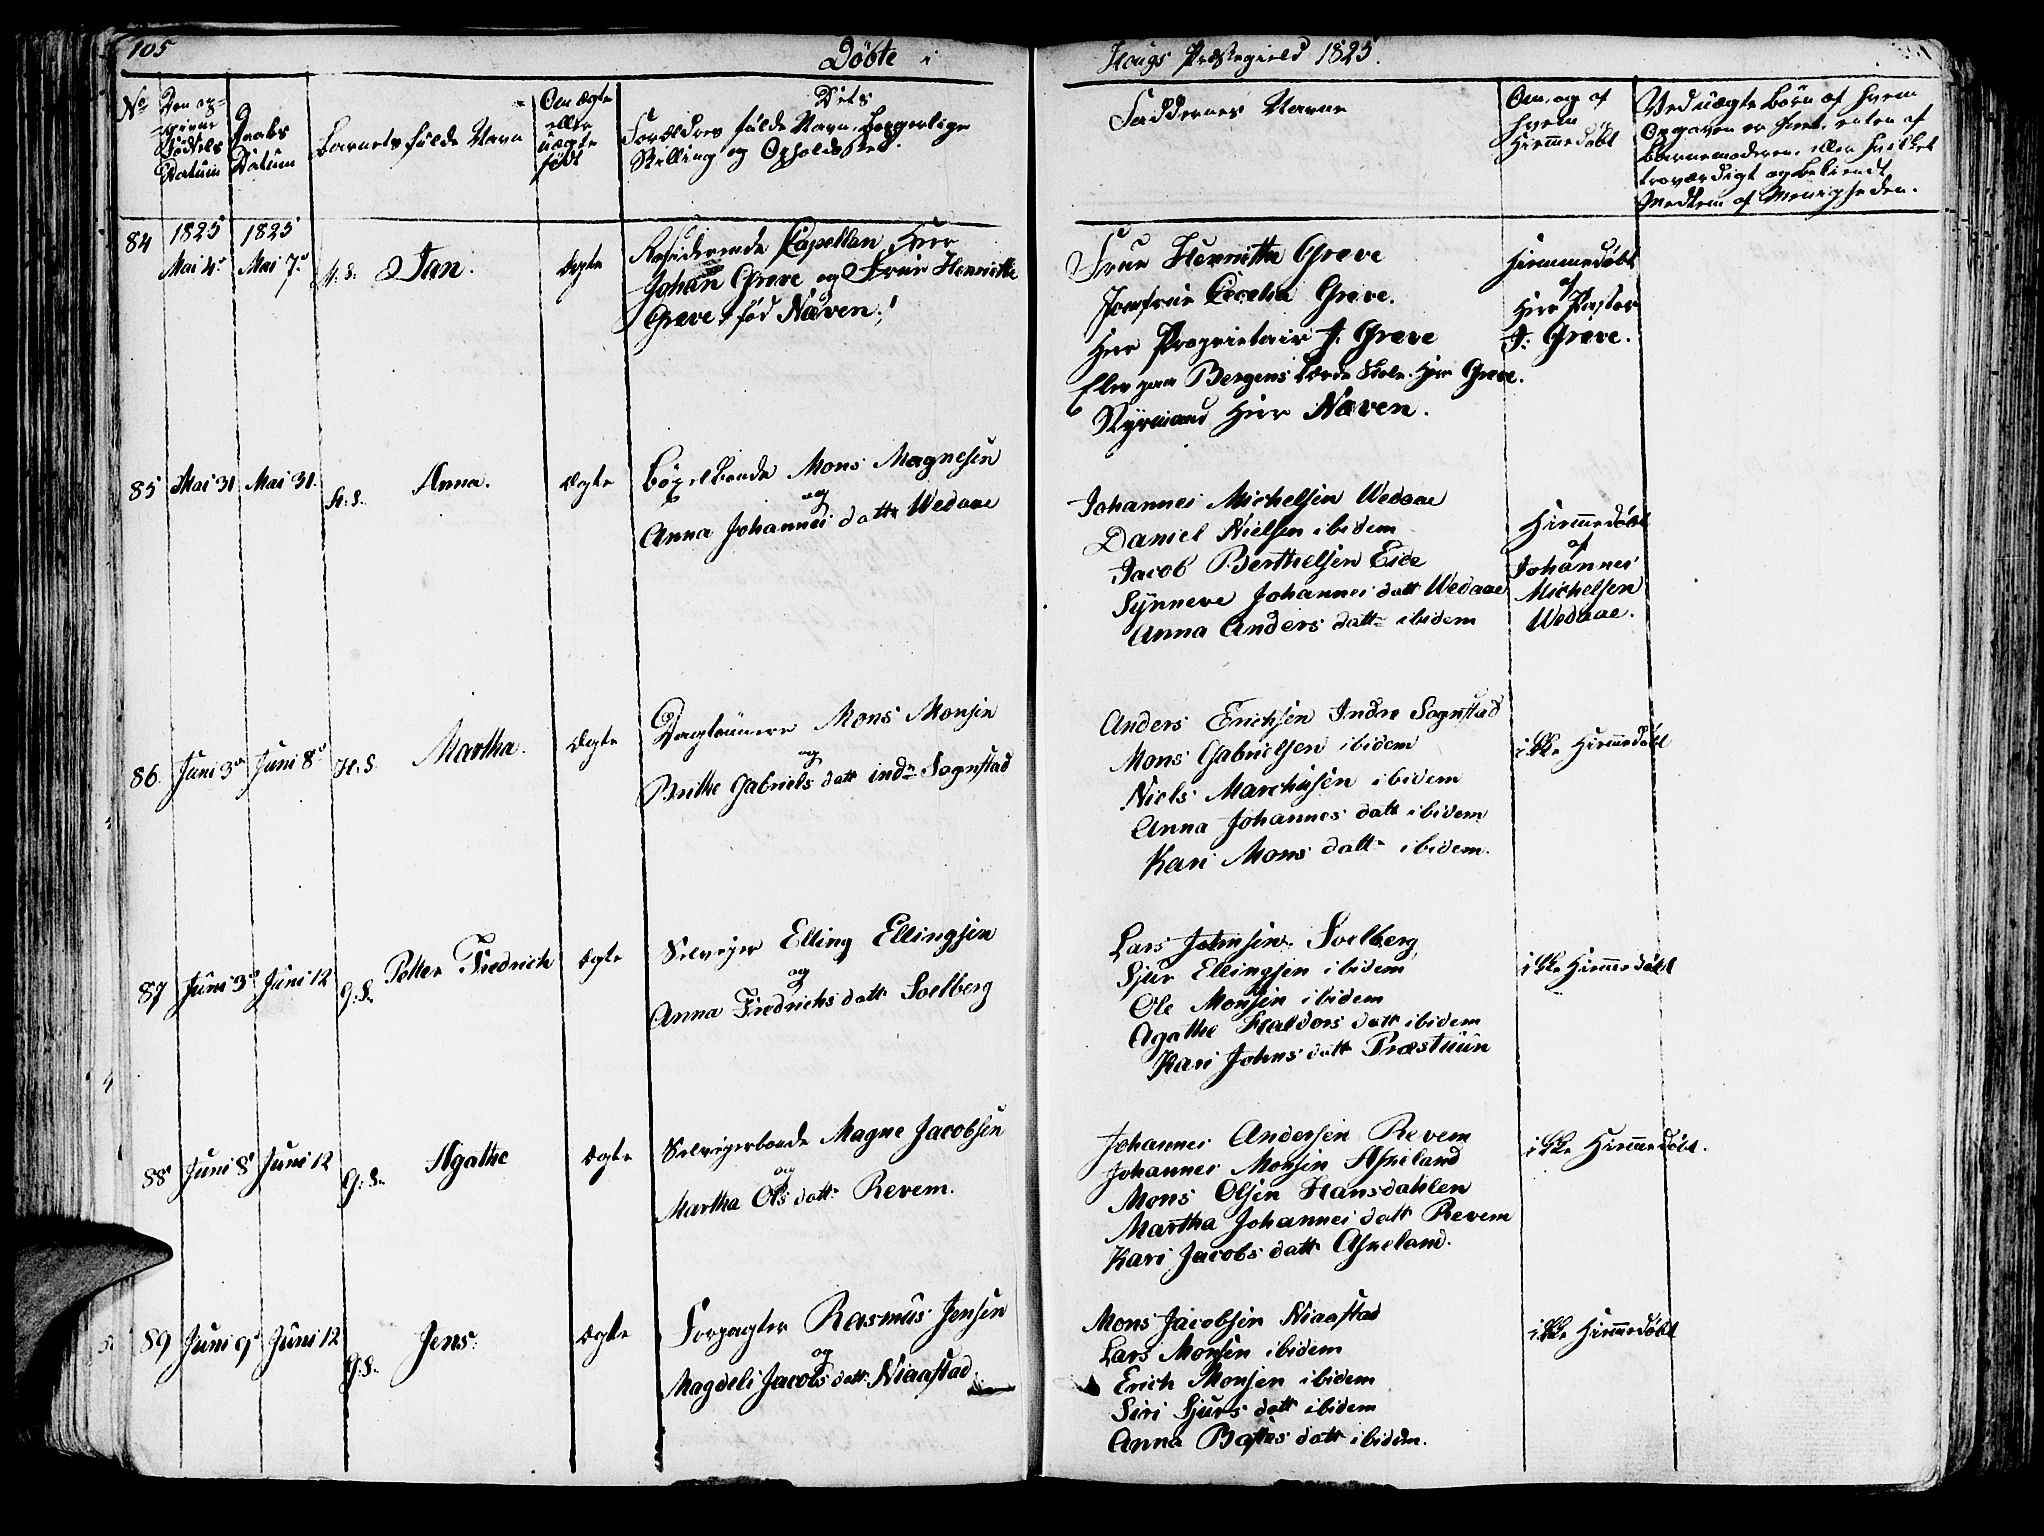 105
Döbte i
Hougs Præstegield 1825.
No
Den op-
givne
Födsels
Datum
Daabs
Datum
Barnets fulde Navn
Om ægte
eller
uægte
födt
Dets
Forældres fulde Navn, borgerlige
Stilling og Opholdssted.
Faddernes Navne
Om, og af
hvem
Hiemmedöbt
Ved uægte Börn af hvem
Opgaven er skeet, enten af
Barnemoderen, eller hvilket
troværdigt og bekiendt
Medlem af Menigheden.
84
1825
Mai 4de
1825
Mai 7de
H. S. Dan.
Ægte
Residerende Capellan Herr
Johan Greve og Frue Henriette
Greve, fød Næven.
Frue Henriette Greve
Jomfrue Cecelia Greve.
Herr Proprietair J. Greve
Elev paa Bergens Lærde Skole Herr Greve.
Styrmand Herr Næven.
Hiemmedöbt
af
Herr Pastor
J: Greve.
85
Mai 31
Mai 31.
H. S. Anna.
Ægte
Böxelbonde Mons Magnesen
og
Anna Johannes datter Wedaae
Johannes Michelsen Wedaae
Daniel Nielsen ibidem
Jacob Berthelsen Eide
Synneve Johannes datt Wedaae
Anna Anders datt ibidem
Hiemmedöbt
af
Johannes
Michelsen
Wedaae.
86
Juni 3de
Juni 8de
H. S. Martha.
Ægte
Daglønnere Mons Monsen
og
Brithe Gabriels datt indre Sognstad
Anders Erichsen Indre Sognstad
Mons Gabrielsen ibidem
Niels Marchusen ibidem
Anna Johannes datt ibidem
Kari Mons datt ibidem.
ikke Hiemmedöbt
87
Juni 3de
Juni 12
G. S. Petter Fredrich
Ægte
Selveier Elling Ellingsen
og
Anna Fredrichs datt Soelberg
Lars Johnsen Soelberg
Sjur Ellingsen ibidem
Ole Monsen ibidem
Agathe Haldors datt ibidem
Kari Johns datt Præstuun
ikke Hiemmedöbt
88
Juni 8de
Juni 12
G: S. Agathe
Ægte
Selveierbonde Magne Jacobsen
og
Martha Ols datt Revem.
Johannes Andersen Revem
Johannes Monsen Asheland
Mons Olsen Hansdahlen
Martha Johannes datt Revem
Kari Jacobs datt Asheland.
ikke Hiemmedöbt.
89
Juni 9de
Juni 12
G. S. Jens.
Ægte
Forpagter Rasmus Jensen
og
Magdeli Jacobs datt Niaastad
Mons Jacobsen Niaastad
Lars Monsen ibidem
Erich Monsen ibidem
Siri Sjurs datt ibidem
Anna datt ibidem.
ikke Hiemmedöbt